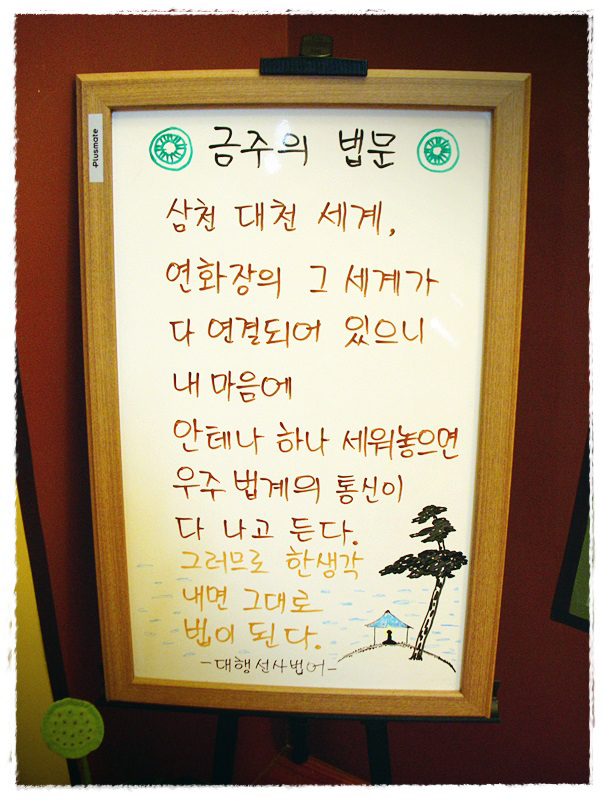 plusmate
금주의 법문
삼천 대천 세계,
연화장의 그 세계가
다 연결되어 있으니
내 마음에
안테나 하나 세워놓으면
우주 법계의 통신이
다 나고 든다.
그러므로 한생각
내면 그대로
법이 된다.
-대행선사법어-